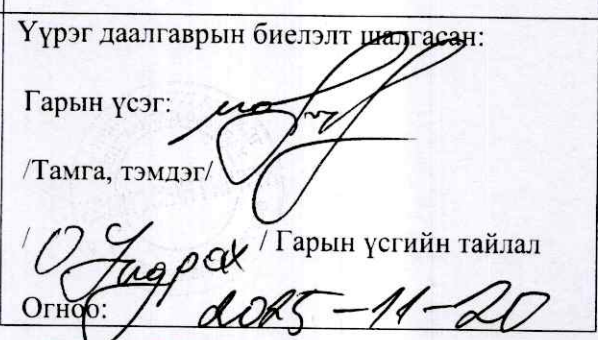 Үүрэг даалгаврын биелэлт шалгасан:
Гарын үсэг:
/Тамга, тэмдэг/
/ О Ундрах / Гарын үсгийн тайлал
Огноо: 2025-11-20